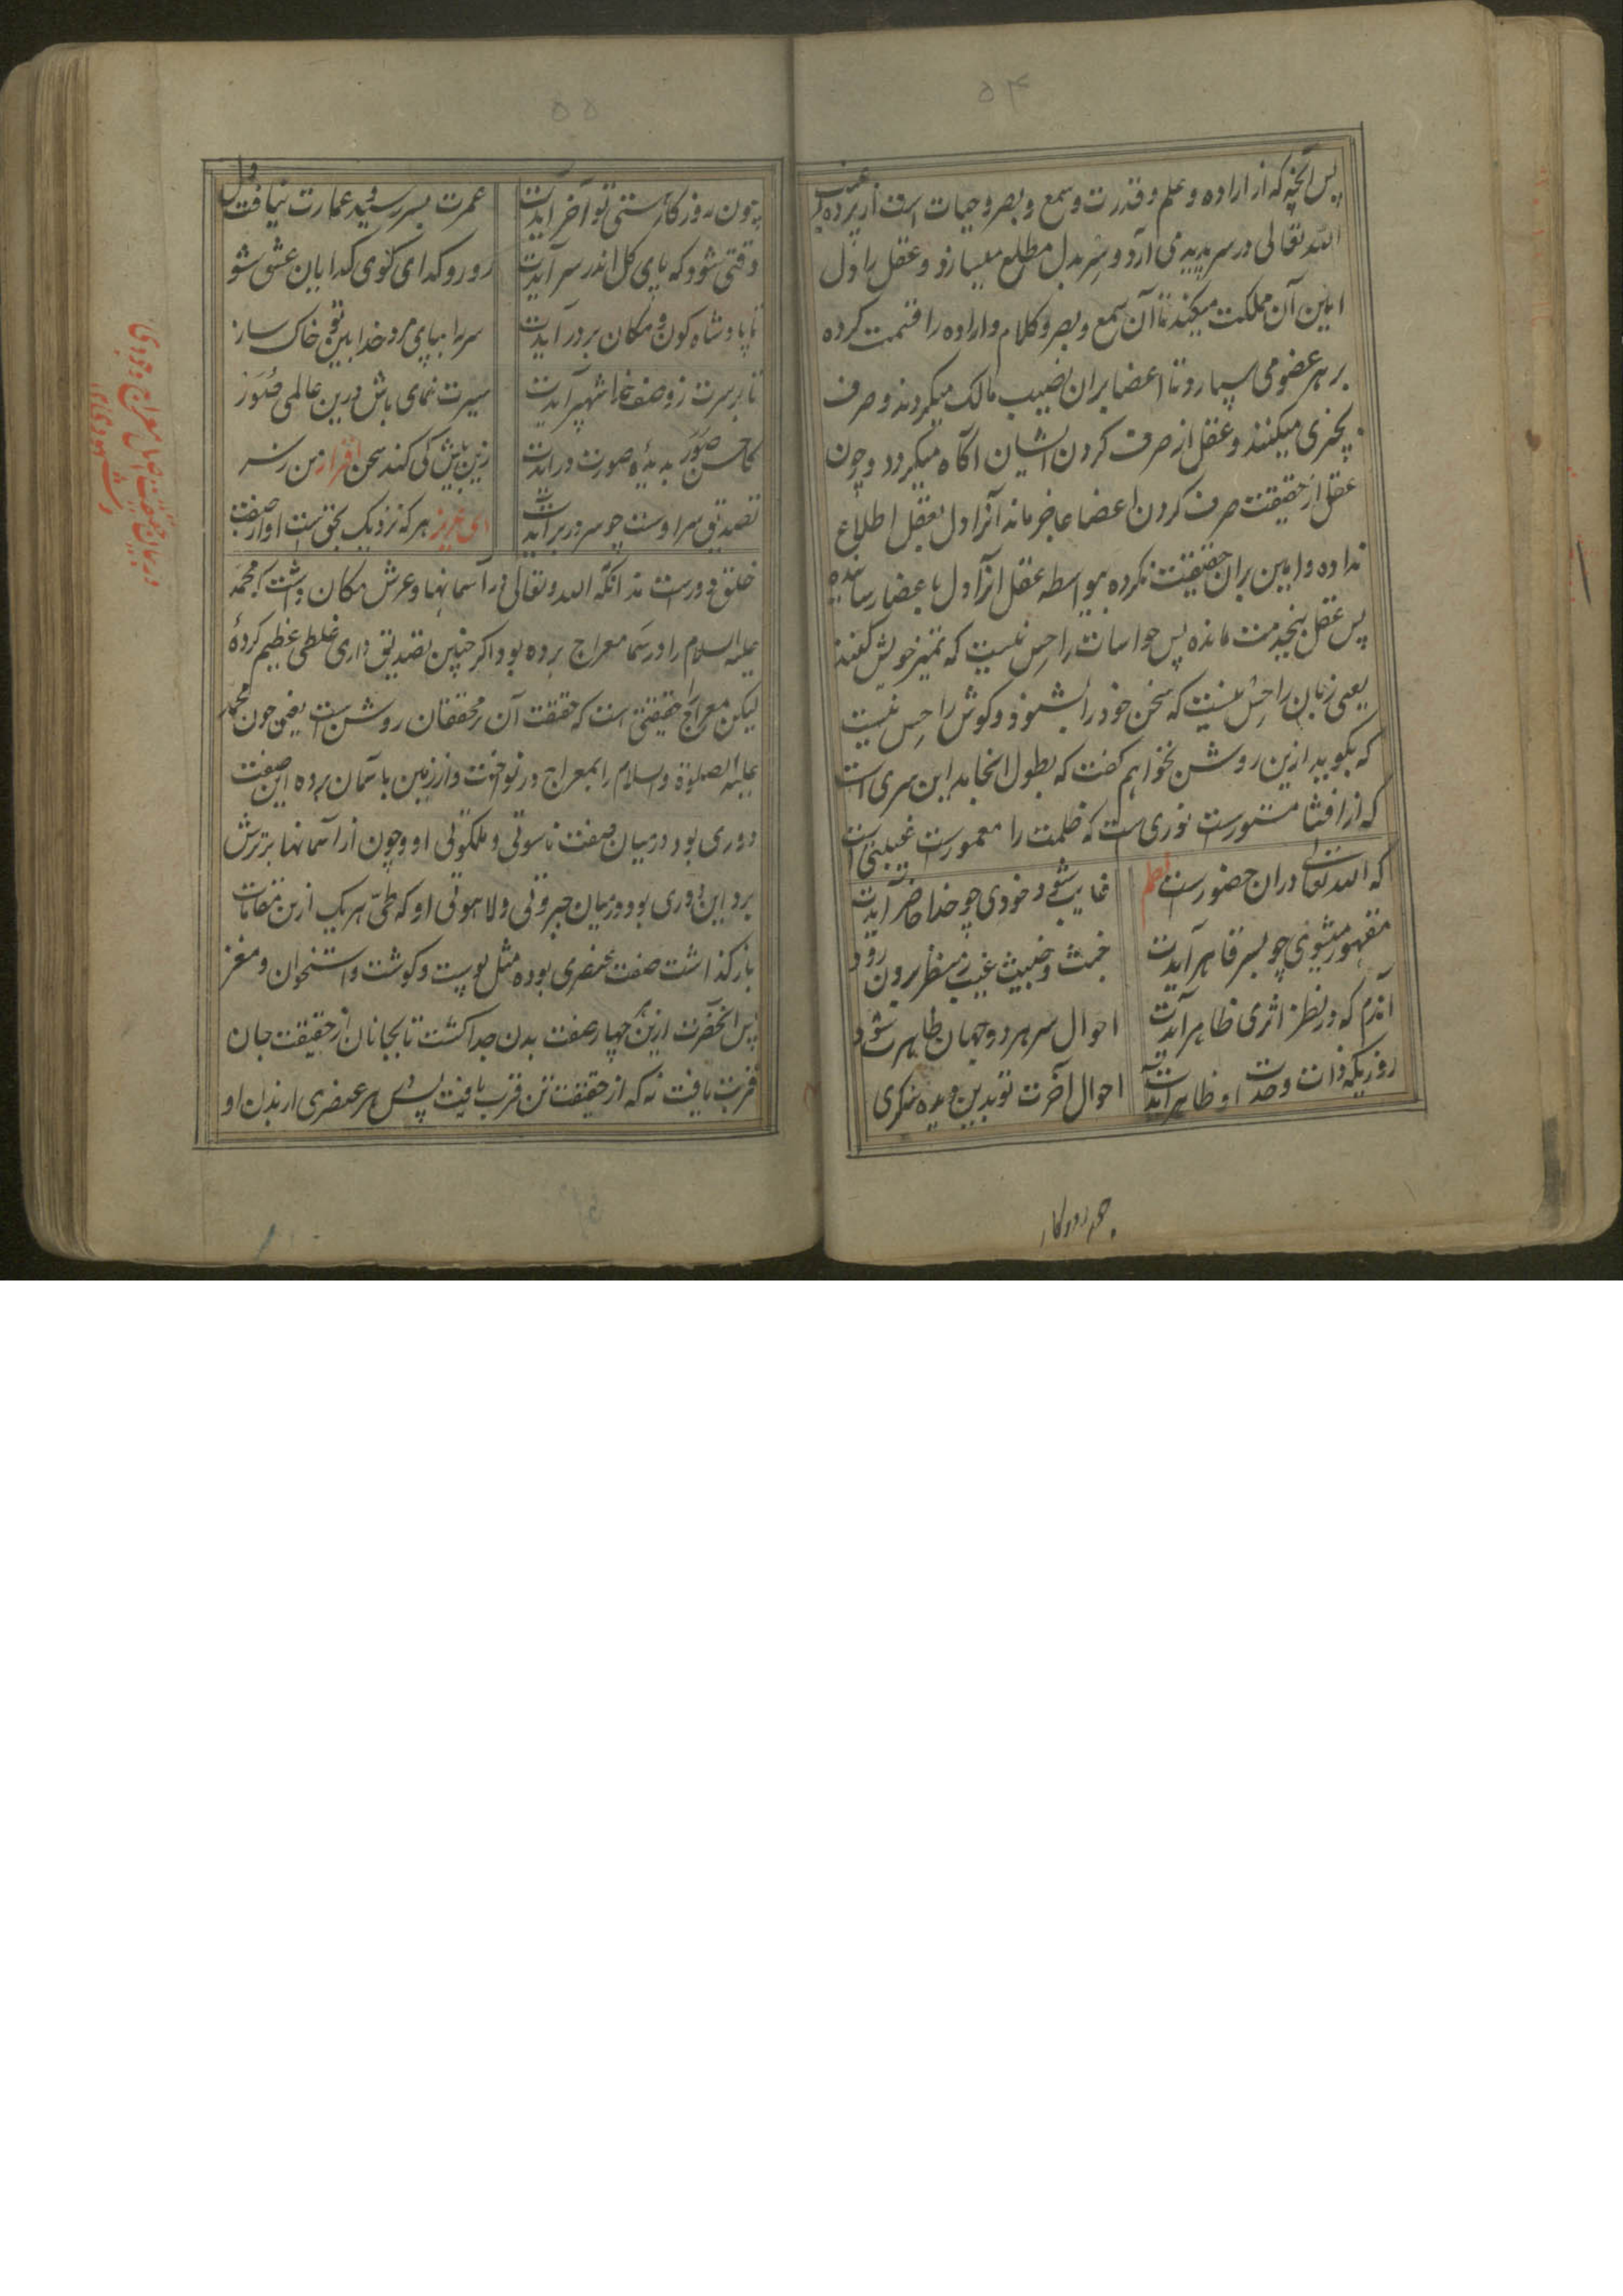 ۵۴
پس آنچه که از اراده و علم و قدرت و سمع و بصر و حیات است از پرده غیب
الله تعالی در سر پدید می آرد و سر بدل مطلع میسازد و عقل را دل
امین آن مملکت میکند تا آن سمع و بصر و کلام و اراده را قسمت کرده
بر هر عضو می سپارد تا اعضا بران نصیب مالک میگردند و صرف
بچیزی میکنند و عقل از صرف کردن ایشان آگاه میگردد و چون
عقل از حقیقت صرف کردن اعضا عاجز ماند آنرا دل بعقل اطلاع
نداده و امین بران حقیقت نکرده بیواسطه عقل آنرا دل باعضا رسانیده
پس عقل بیخدمت مانده پس حواسات را حس نیست که تمیز خویش کنند
یعنی زبان را حس نیست که سخن خود را بشنود و گوش را حس نیست
که بگوید ازین روشن نخواهم گفت که بطول انجامد این سری است
که از افشا مستورست نوری ست که ظلمت را معمورست غیبتی است
که الله تعالی دران حضورست نظم
غایب شود خودی چو خدا حاضر آیدت
مقهور میشوی چو بسر قاهر آیدت
خبث و خبیث غیب ز منظر برون رود
آندم که در نظر اثری ظاهر آیدت
احوال سر هر دو جهان ظاهرت شود
روزیکه ذات وحدت او ظاهر آیدت
احوال آخرت تو بدین دیده ننگری
چون روزگار
۵۵
چون روزگار هستی تو آخر آیدت
عمرت بسر رسید عمارت نیافت دل
وقتی شود که پای گل اندر سر آیدت
رو رو گدای کوی گدایان عشق شو
تا پادشاه کون و مکان بر در آیدت
سر را بپای مرد خدابین تو خاک ساز
تا بر سرت ز وصف خدا شهپر آیدت
سیرت نمای باش درین عالمی صور
کاحسن صور بدیده صورت در آیدت
زین بیش کی کند سخن اقرار من ز سر
تصدیق سر اوست چو سر در بر آیدت
ای عزیز هر که نزدیک بحق است او از صفت
خلق دورست نه آنکه الله تعالی در آسمانها و عرش مکان داشت که محمد
علیه السلام را در سما معراج برده بود اگر چنین تصدیق داری غلطی عظیم کردهٔ
لیکن معراج حقیقتی است که حقیقت آن بر محققان روشن است یعنی چون محمد
علیه الصلوة والسلام را بمعراج در نواخت و از زمین باسمان برده این صفت
دوری بود در میان صفت ناسوتی و ملکوتی او و چون از آسمانها برترش
برد این دوری بود در میان جبروتی و لاهوتی او که طی هر یک ازین مقامات
باز گذاشت صفت عنصری بوده مثل پوست و گوشت و استخوان و مغز
پس آنحضرت ازین چهار صفت بدن جدا گشت تا بجانان از حقیقت جان
قربت یافت نه که از حقیقت تن قرب یافت پس هر عنصری از بدن او
در بیان حقیقت اصل معراج وجودی